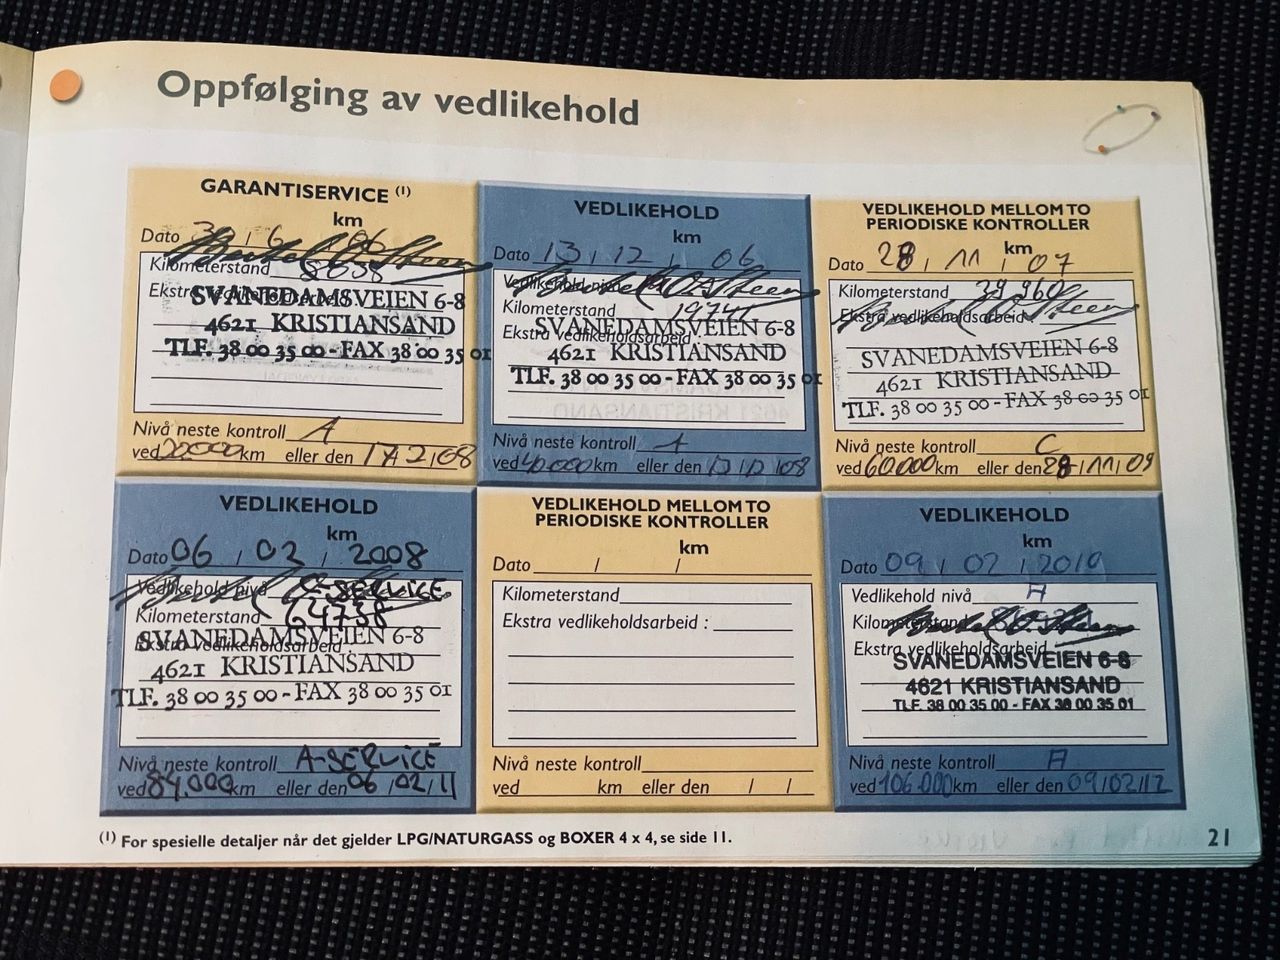 Oppfølging av vedlikehold
GARANTISERVICE (1)
km
Dato 30 / 6 06
Kilometerstand 8658
SVANEDAMSVEIEN 6-8
4621 KRISTIANSAND
TLF. 38 00 35 00 - FAX 38 00 35 01
Nivå neste kontroll A
ved 20.000 km eller den
VEDLIKEHOLD
km
Dato 13 / 12 / 06
Vedlikehold nivå
Kilometerstand 19741
Ekstra vedlikeholdsarbeid :
SVANEDAMSVEIEN 6-8
4621 KRISTIANSAND
TLF. 38 00 35 00 - FAX 38 00 35 01
Nivå neste kontroll A
ved 40.000 km eller den 13/12/08
VEDLIKEHOLD MELLOM TO
PERIODISKE KONTROLLER
km
Dato 28 / 11 / 07
Kilometerstand 39 960
Ekstra vedlikeholdsarbeid :
SVANEDAMSVEIEN 6-8
4621 KRISTIANSAND
TLF. 38 00 35 00 - FAX 38 00 35 01
Nivå neste kontroll C
ved 60.000 km eller den 28/11/09
VEDLIKEHOLD
km
Dato 06 / 02 / 2008
Vedlikehold nivå C-SERVICE
Kilometerstand 64738
Ekstra vedlikeholdsarbeid
SVANEDAMSVEIEN 6-8
4621 KRISTIANSAND
TLF. 38 00 35 00 - FAX 38 00 35 01
Nivå neste kontroll A-SERVICE
ved 84.000 km eller den 06/02/11
VEDLIKEHOLD MELLOM TO
PERIODISKE KONTROLLER
km
Dato / /
Kilometerstand
Ekstra vedlikeholdsarbeid :
Nivå neste kontroll
ved km eller den / /
VEDLIKEHOLD
km
Dato 09 / 02 / 2010
Vedlikehold nivå A
Kilometerstand
Ekstra vedlikeholdsarbeid
SVANEDAMSVEIEN 6-8
4621 KRISTIANSAND
TLF. 38 00 35 00 - FAX 38 00 35 01
Nivå neste kontroll A
ved 106.000 km eller den 09/02/12
(1) For spesielle detaljer når det gjelder LPG/NATURGASS og BOXER 4 x 4, se side 11.
21